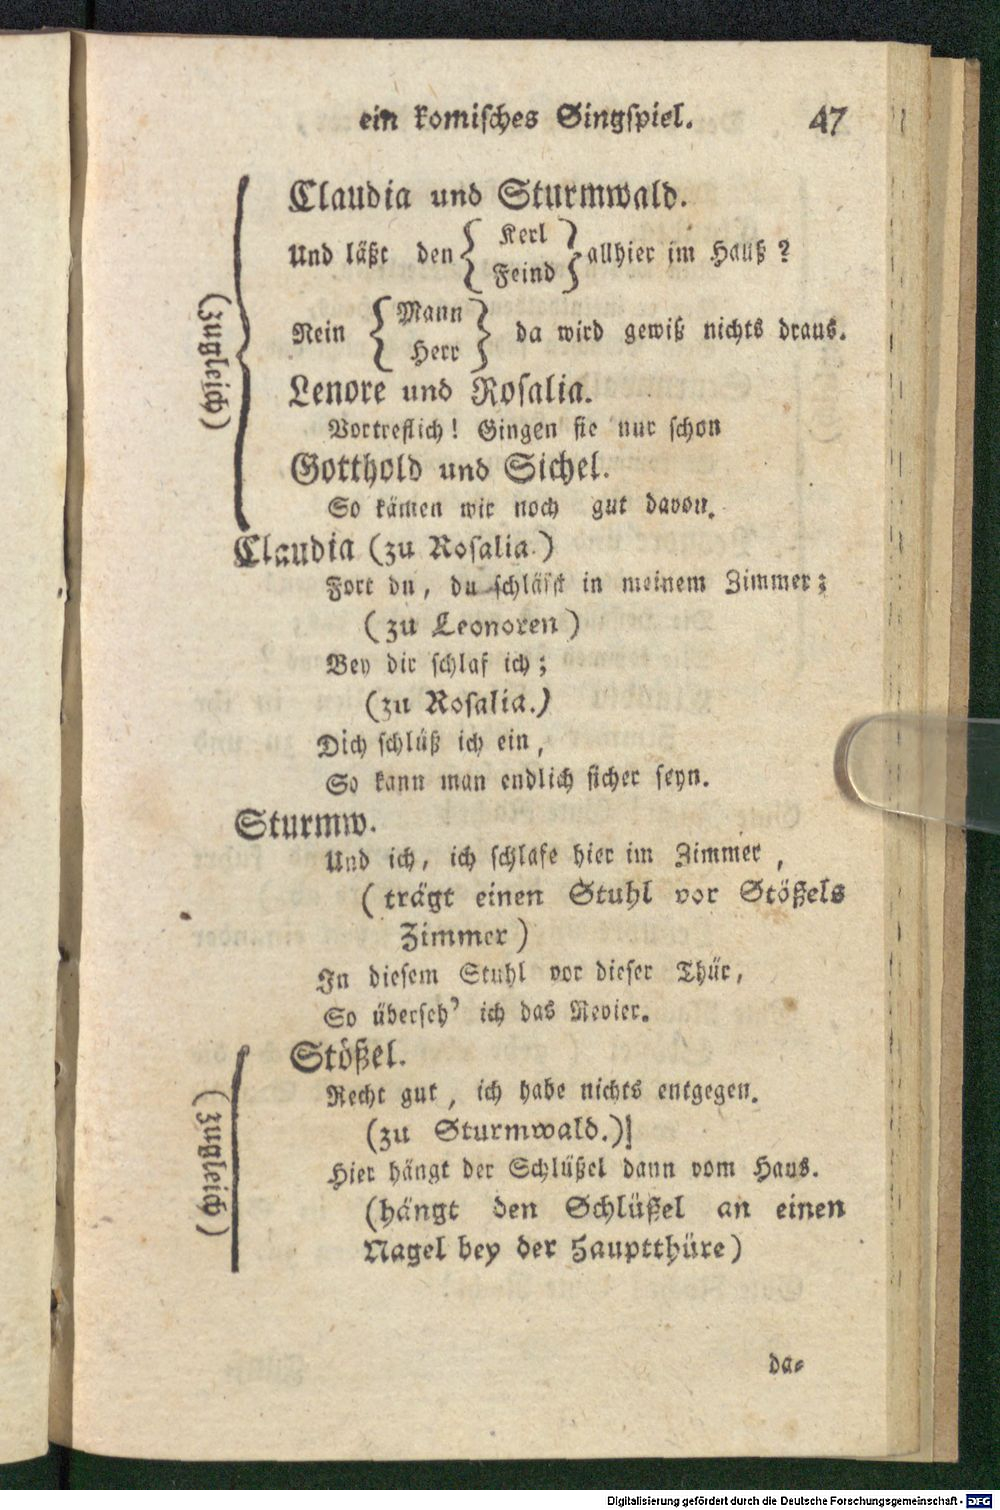 ein komisches Singspiel. 47
(zugleich)
Claudia und Sturmwald.
Und läßt den { Kerl / Feind } allhier im Hauß?
Nein { Mann / Herr } da wird gewiß nichts draus.
Lenore und Rosalia.
Vortreflich! Gingen sie nur schon
Gotthold und Sichel.
So kämen wir noch gut davon.
Claudia (zu Rosalia.)
Fort du, du schläfst in meinem Zimmer;
(zu Leonoren)
Bey dir schlaf ich;
(zu Rosalia.)
Dich schlüß ich ein,
So kann man endlich sicher seyn.
Sturmw.
Und ich, ich schlafe hier im Zimmer,
(trägt einen Stuhl vor Stößels
Zimmer)
In diesem Stuhl vor dieser Thür,
So überseh' ich das Revier.
(zugleich)
Stößel.
Recht gut, ich habe nichts entgegen.
(zu Sturmwald.)
Hier hängt der Schlüßel dann vom Haus.
(hängt den Schlüßel an einen
Nagel bey der Hauptthüre)
da-
Digitalisierung gefördert durch die Deutsche Forschungsgemeinschaft - DFG